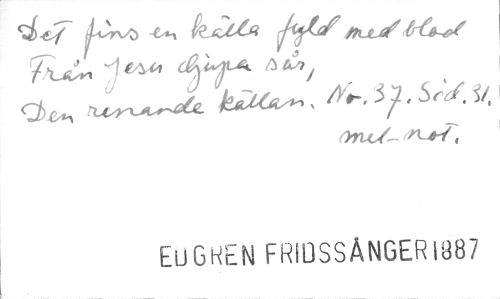 Det fins en källa fyld med blod
Från Jesu djupa sår,
Den renande källan. No. 37. Sid. 31.
mel-not.
EUGREN FRIDSSÅNGER 1887